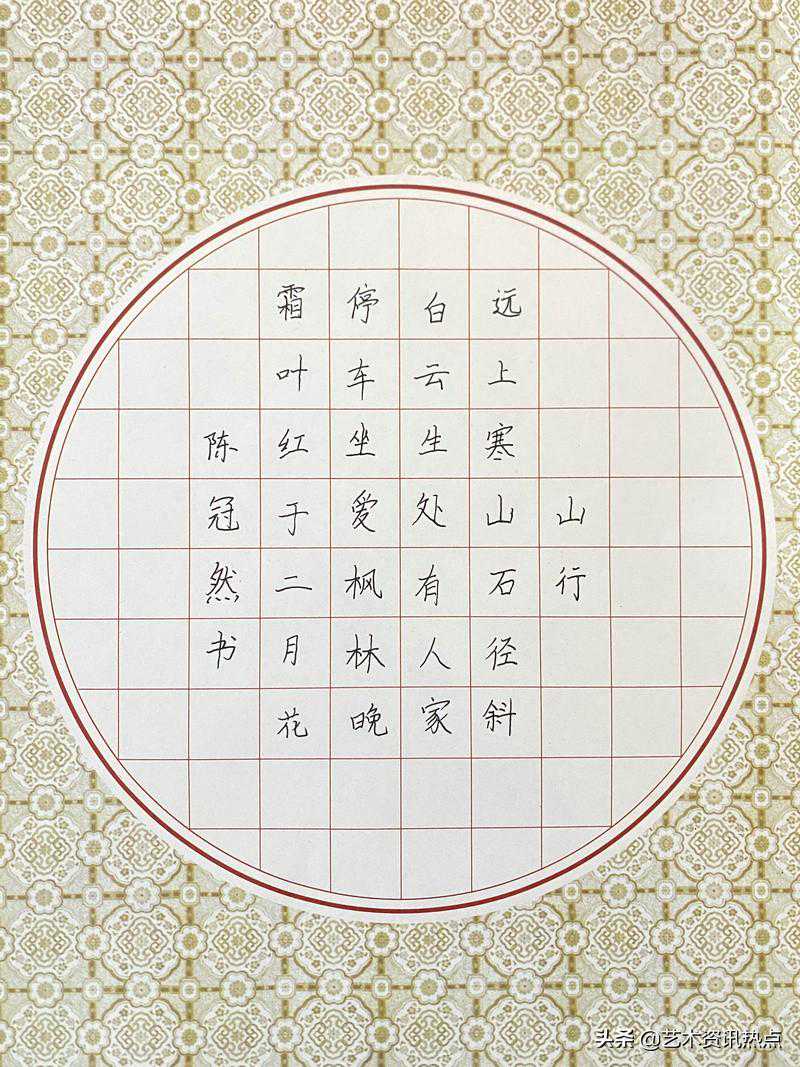 山行
远上寒山石径斜
白云生处有人家
停车坐爱枫林晚
霜叶红于二月花
陈冠然书
头条 @艺术资讯热点